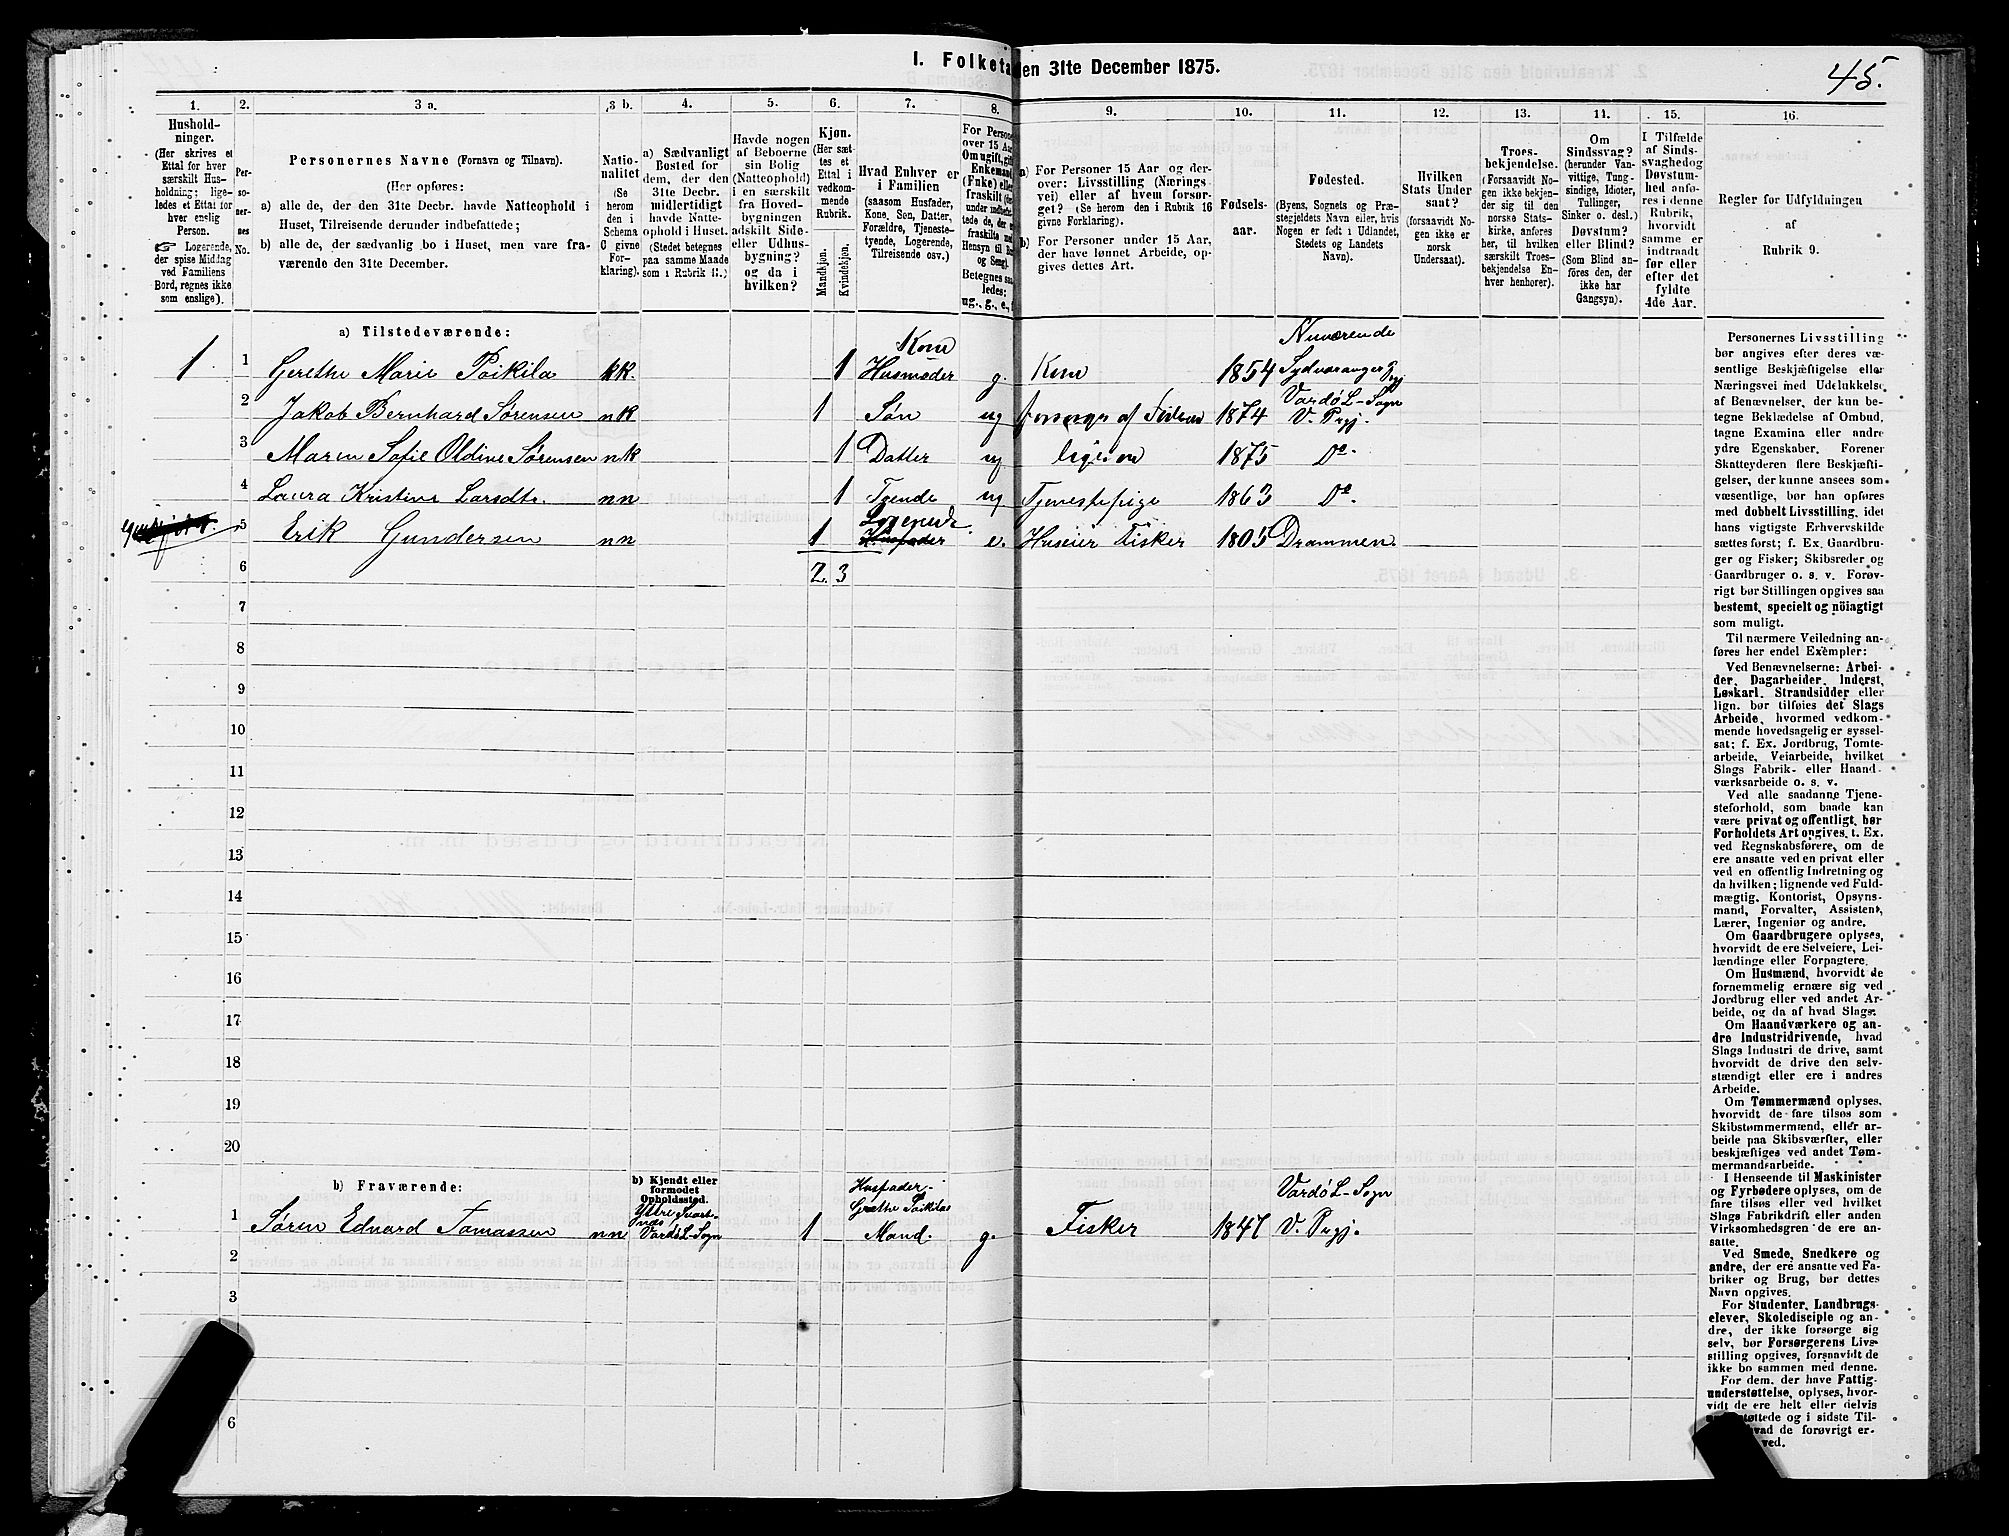 I. Folketa
den 31te December 1875.
45.
1.
Hushold-
ninger.
(Her skrives et
Ettal for hver
særskilt Hus-
holdning; lige-
ledes et Ettal for
hver enslig
Person.
Logerende,
der spise Middag
ved Familiens
Bord, regnes ikke
som enslige).
2.
Per-
so-
ner-
nes
No.
3 a.
Personernes Navne (Fornavn og Tilnavn).
(Her opføres:
a) alle de, der den 31te Decbr. havde Natteophold i
Huset, Tilreisende derunder indbefattede;
b) alle de, der sædvanlig bo i Huset, men vare fra-
værende den 31te December.
3 b.
Natio-
nalitet
(Se
herom
den i
Schema
C givne
For-
klaring).
4.
a) Sædvanligt
Bosted for
dem, der den
31te Decbr.
midlertidigt
havde Natte-
ophold i Huset.
(Stedet betegnes
paa samme Maade
som i Rubrik 11.)
5.
Havde nogen
af Beboerne
sin Bolig
(Natteophold)
i en særskilt
fra Hoved-
bygningen
adskilt Side-
eller Udhus-
bygning?
og da i
hvilken?
6.
Kjøn.
(Her sæt-
tes et
Ettal i
vedkom-
mende
Rubrik.
Mandkjøn.
Kvindekjøn.
7.
Hvad Enhver er
i Familien
(saasom Husfader,
Kone, Søn, Datter,
Forældre, Tjeneste-
tyende, Logerende,
Tilreisende osv.)
8.
For Person
over 15 Aa
Om ugift, gift
Enkemand
(Enke) elle
fraskilt
Betegnes saa
ledes:
ug., g., e.,
9.
a) For Personer 15 Aar og der-
over: Livsstilling (Nærings-
vei) eller af hvem forsør-
get? (Se herom den i Rubrik 16
givne Forklaring).
b) For Personer under 15 Aar,
der have lønnet Arbeide, op-
gives dettes Art.
10.
Fødsels-
aar.
11.
Fødested.
(Byens, Sognets og Præ-
stegjeldets Navn eller, hvis
Nogen er født i Udlandet,
Stedets og Landets
Navn).
12.
Hvilken
Stats Under
saat?
(forsaavidt No-
gen ikke er
norsk
Undersaat).
13.
Troes-
bekjendelse.
(Forsaavidt No-
gen ikke bekjen-
der sig til den
norske Stats-
kirke, anføres
her, til hvilken
særskilt Troes-
bekjendelse En-
hver henhører).
14.
Om
Sindssvag?
(herunder Van-
vittige, Tung-
sindige, Idioter,
Tullinger,
Sinker o. desl.)
Døvstum?
eller Blind?
(Som Blind an-
føres den, der
ikke har
Gangsyn).
15.
I Tilfælde
af Sinds-
svaghedog
Døvstum-
hed anfø-
res i denne
Rubrik,
hvorvidt
samme er
indtraadt
før eller
efter det
fyldte
4de Aar.
16.
Regler for Udfyldningen
af
Rubrik 9.
a) Tilstedeværende:
1 1 Grethe Marie Poikila kk. 1 Kone Husmoder g. Kone 1854 Nuværende Sydvaranger Prgj
2 Jakob Bernhard Sørensen nk 1 Søn ug forsørges af Faderen 1874 Vardö L-Sogn V. Prgj.
3 Maren Sofie Oldine Sørensen nk 1 Datter ug ligesom 1875 Do
4 Laura Kristine Larsdtr. nn 1 Tyende ug Tjenestepige 1863 Do
5 Erik Gundersen nn 1 Logerende Husfader e. Huseier Fisker 1805 Drammen.
6 2. 3
7
8
9
10
11
12
13
14
15
16
17
18
19
20
b) Fraværende:
b) Kjendt eller
formodet
Opholdssted.
1 Søren Edvard Tomassen nn Yttre Svart-
næs
Vardö L-Sogn 1 Husfader.
Grethe Poikilas
Mand. g. Fisker 1847 Vardö L-Sogn
V. Prgj.
2
3
6
Personernes Livsstilling
bør angives efter deres væ-
sentlige Beskjæftigelse eller
Næringsvei med Udelukkelse
af Benævnelser, der kun be-
tegne Beklædelse af Ombud,
tagne Examina eller andre
ydre Egenskaber. Forener
Skatteyderen flere Beskjæfti-
gelser, der kunne ansees som
væsentlige, bør han opføres
med dobbelt Livsstilling, idet
hans vigtigste Erhvervskilde
sættes først; f. Ex. Gaardbru-
ger og Fisker; Skibsreder og
Gaardbruger o. s. v. Forøv-
rigt bør Stillingen opgives saa
bestemt, specielt og nöiagtigt
som muligt.
Til nærmere Veiledning an-
føres her endel Exempler:
Ved Benævnelserne: Arbei-
der, Dagarbeider, Inderst,
Løskarl, Strandsidder eller
lign. bør tilføies det Slags
Arbeide, hvormed vedkom-
mende hovedsagelig er syssel-
sat; f. Ex. Jordbrug, Tomte-
arbeide, Veiarbeide, hvilket
Slags Fabrik- eller Haand-
værksarbeide o. s. v.
Ved alle saadanne Tjene-
steforhold, som baade kan
være privat og offentligt, bør
Forholdets Art opgives. t. Ex.
ved Regnskabsførere, om de
ere ansatte ved en privat eller
ved en offentlig Indretning og
da hvilken; lignende ved Fuld-
mægtig, Kontorist, Opsyns-
mand, Forvalter, Assistent,
Lærer, Ingeniør og andre.
Om Gaardbrugere oplyses,
hvorvidt de ere Selveiere, Lei-
lændinge eller Forpagtere.
Om Husmænd, hvorvidt de
fornemmelig ernære sig ved
Jordbrug eller ved andet Ar-
beide, og da af hvad Slags.
Om Haandværkere og an-
dre Industridrivende, hvad
Slags Industri de drive, samt
hvorvidt de drive den selv-
stændigt eller ere i andres
Arbeide.
Om Tømmermænd oplyses,
hvorvidt de fare tilsøs som
Skibstømmermænd, eller ar-
beide paa Skibsværfter, eller
beskjæftiges ved andet Tøm-
mermandsarbeide.
I Henseende til Maskinister
og Fyrbødere oplyses, om de
fare tilsøs eller ved hvilket
Slags Fabrikdrift eller anden
Virksomhedsgren de ere an-
satte.
Ved Smede, Snedkere og
andre, der ere ansatte ved Fa-
briker og Brug, bør dettes
Navn opgives.
For Studenter, Landbrugs-
elever, Skoledisciple og an-
dre, der ikke forsørge sig
selv, bør Forsørgerens Livs-
stilling opgives, forsaavidt de
ikke bo sammen med denne.
For dem, der have Fattig-
understøttelse, oplyses, hvor-
vidt de ere helt eller delvis
støttede og i sidste Til-
hvad de forøvrigt er-
ved.